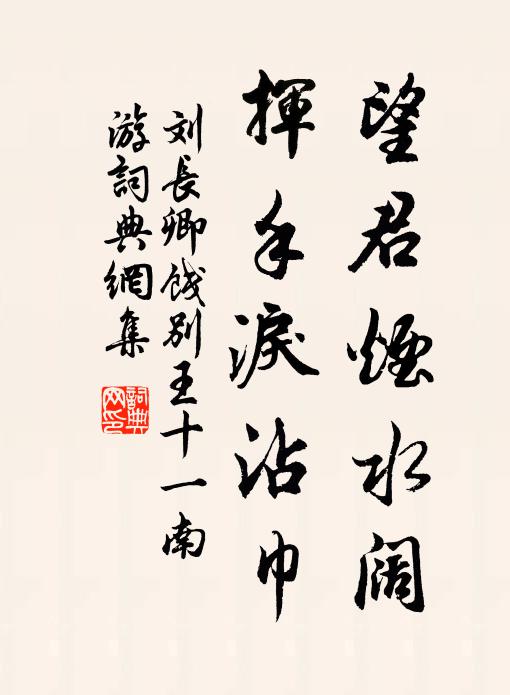 望君煙水阔
揮手淚沾巾
刘長卿餞別王十一南
游詞典網集
詞典
网印